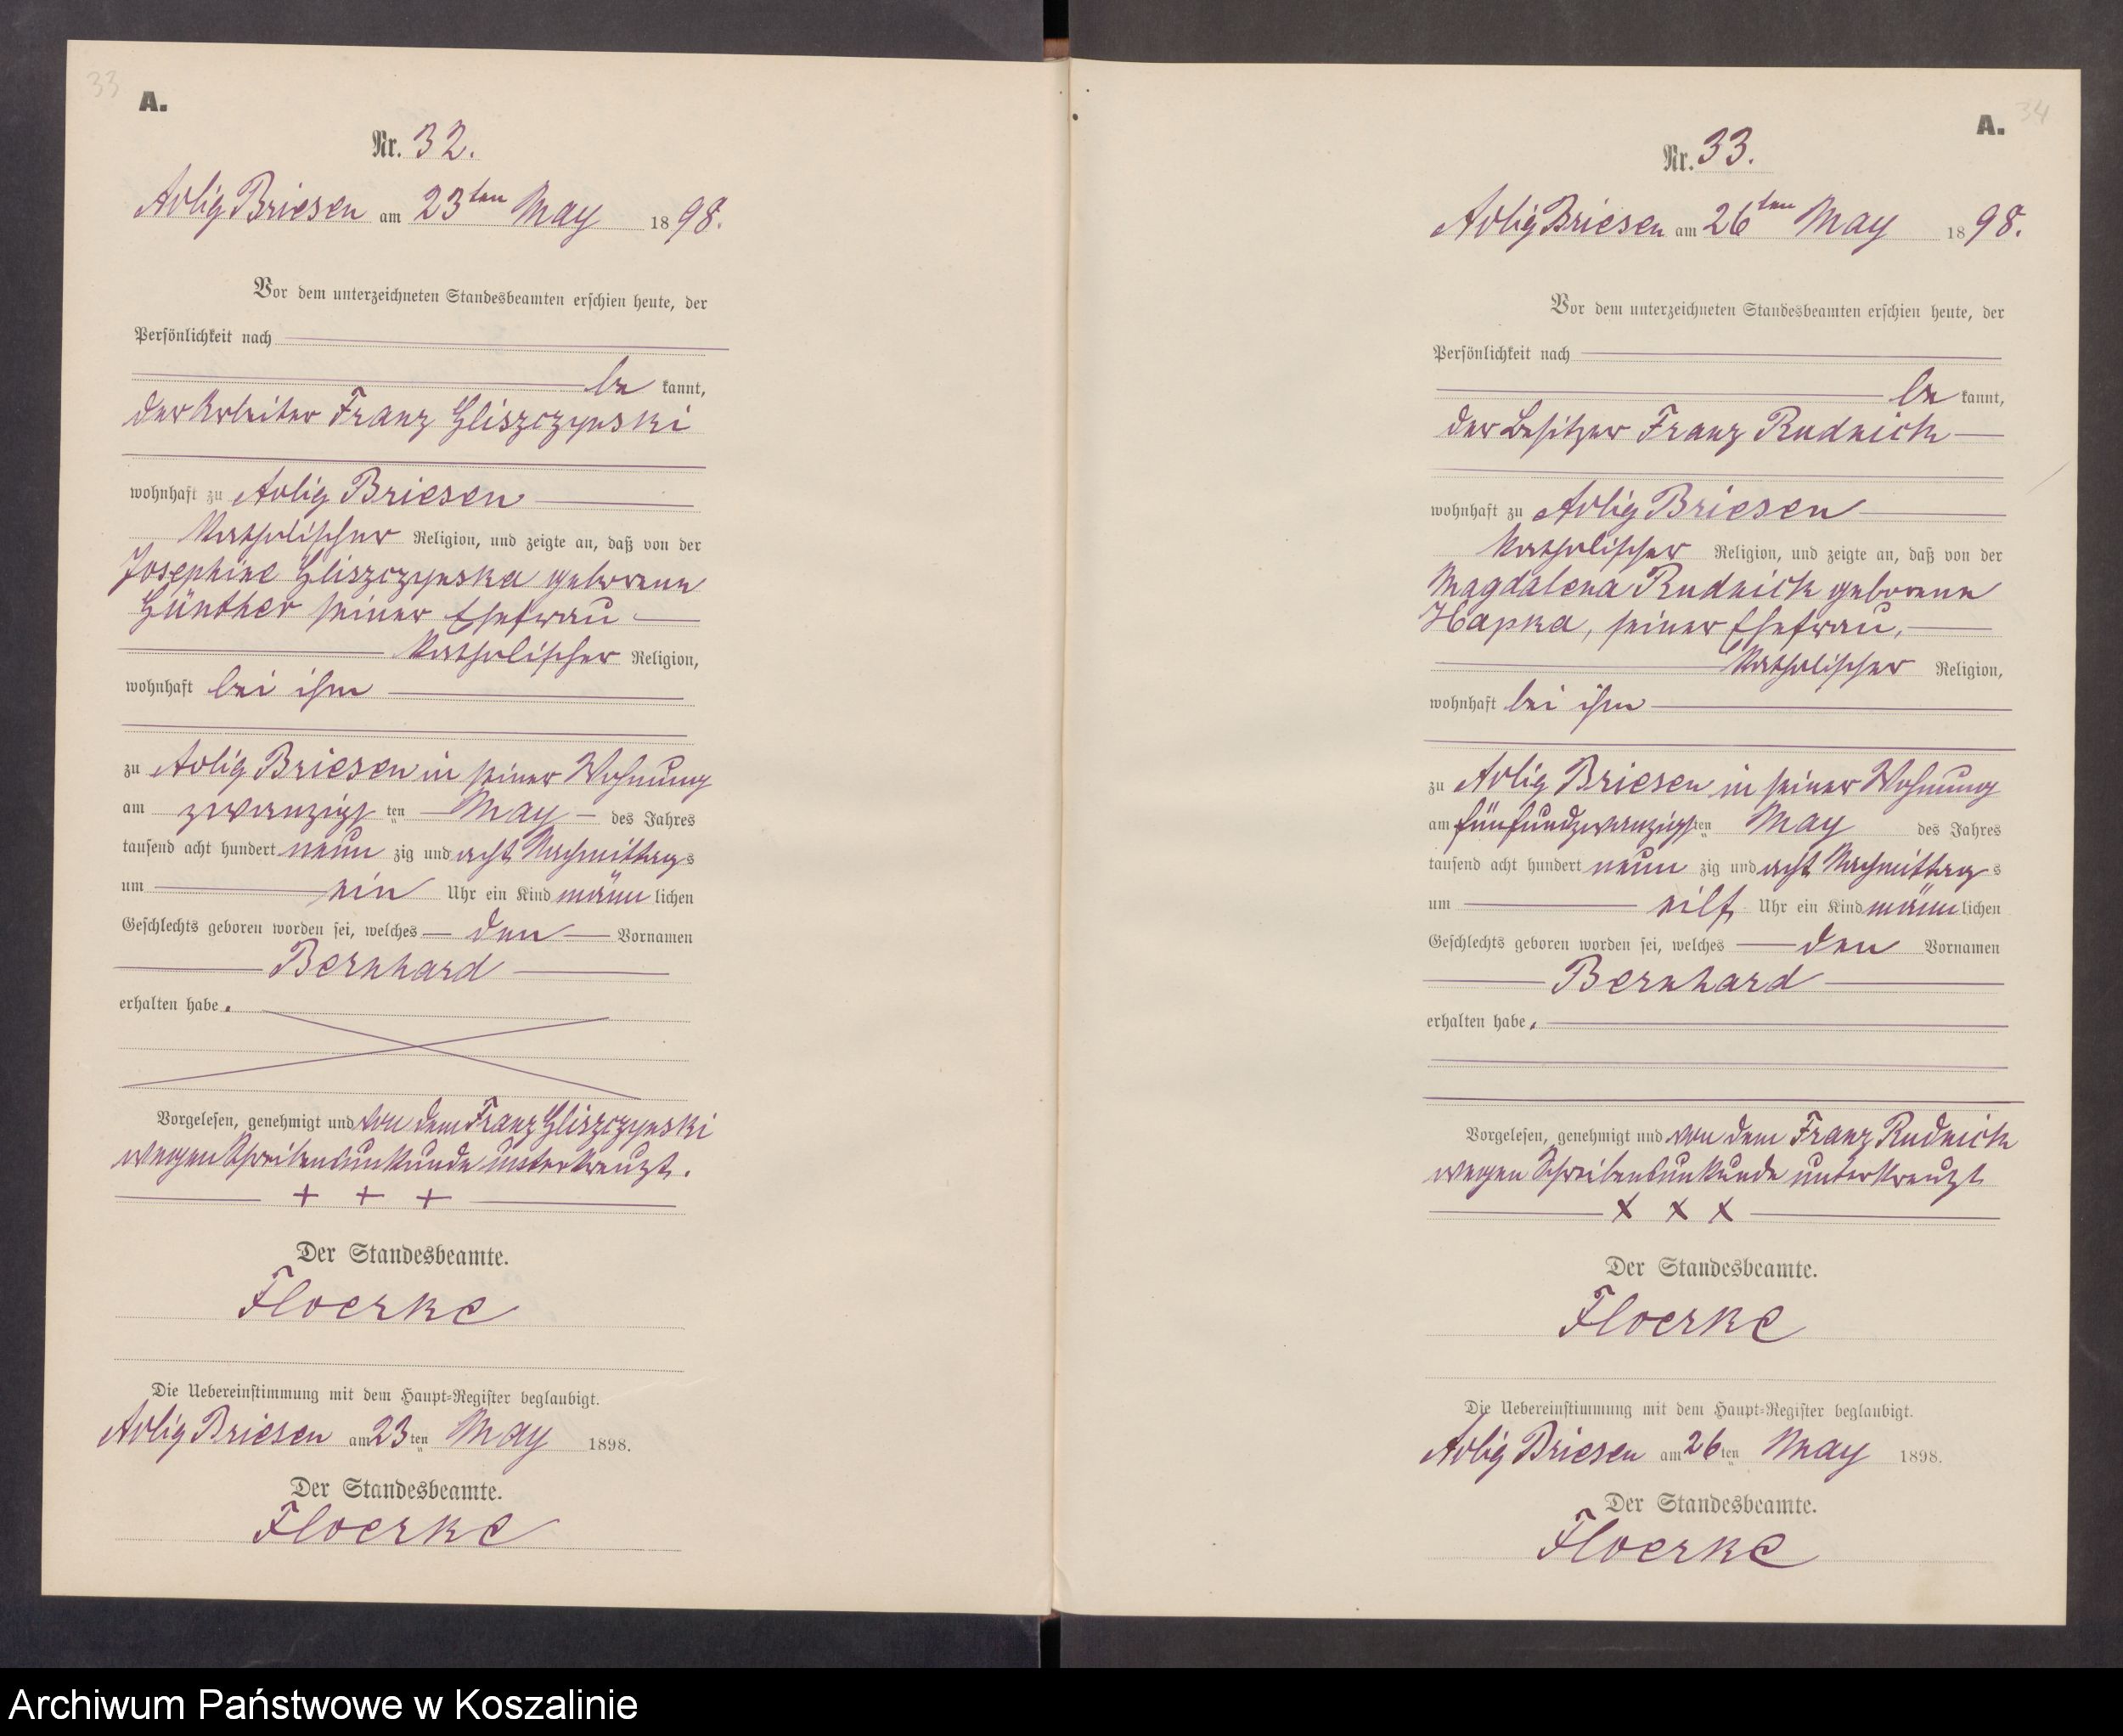 33
A.
Nr. 32.
Adlig Briesen am 23ten May 1898.
Vor dem unterzeichneten Standesbeamten erschien heute, der
Persönlichkeit nach
be kannt,
der Arbeiter Franz Gliszczynski
wohnhaft zu Adlig Briesen
katholischer Religion, und zeigte an, daß von der
Josephine Gliszczynska geborene
Günther seiner Ehefrau
katholischer Religion,
wohnhaft bei ihm
zu Adlig Briesen in seiner Wohnung
am zwanzigs ten May des Jahres
tausend acht hundert neun zig und acht Nachmittags
um ein Uhr ein Kind männlichen
Geschlechts geboren worden sei, welches den Vornamen
Bernhard
erhalten habe.
Vorgelesen, genehmigt und von dem Franz Gliszczynski
wegen Schreibensunkunde unterkreuzt.
+ + +
Der Standesbeamte.
Floerke
Die Uebereinstimmung mit dem Haupt-Register beglaubigt.
Adlig Briesen am 23ten May 1898.
Der Standesbeamte.
Floerke
34
A.
Nr. 33.
Adlig Briesen am 26ten May 1898.
Vor dem unterzeichneten Standesbeamten erschien heute, der
Persönlichkeit nach
be kannt,
der Besitzer Franz Rudnick
wohnhaft zu Adlig Briesen
katholischer Religion, und zeigte an, daß von der
Magdalena Rudnick geborene
Hapka, seiner Ehefrau,
katholischer Religion,
wohnhaft bei ihm
zu Adlig Briesen in seiner Wohnung
am fünfundzwanzigsten May des Jahres
tausend acht hundert neun zig und acht Nachmittags
um eilf Uhr ein Kind männlichen
Geschlechts geboren worden sei, welches den Vornamen
Bernhard
erhalten habe.
Vorgelesen, genehmigt und von dem Franz Rudnick
wegen Schreibensunkunde unterkreuzt
x x x
Der Standesbeamte.
Floerke
Die Uebereinstimmung mit dem Haupt-Register beglaubigt.
Adlig Briesen am 26ten May 1898.
Der Standesbeamte.
Floerke
Archiwum Państwowe w Koszalinie